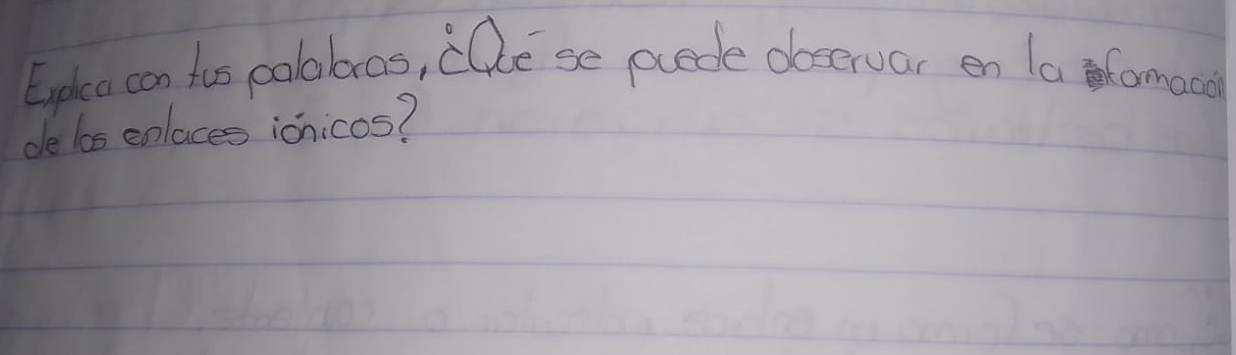 Explica con tus palabras, ¿Qué se puede observar en la formación
de los enlaces iónicos?